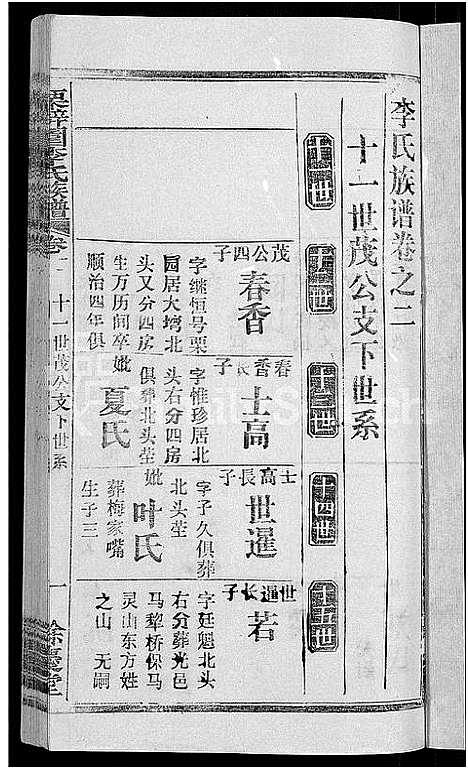 李氏族谱卷之二
十一世茂公支下世系
十一世
十二世
十三世
十四世
十五世
茂公四子
春香
字继恒号栗
园居大塆北
头又分四房
生万历间卒
顺治四年俱
春香长子
士高
字惟珍居北
头右分四房
俱葬北头茔
妣
夏氏
士高長子
世暹
字子久俱葬
北头茔
妣
叶氏
葬梅家嘴
生子三
世暹长子
若
字廷魁北头
右分葬光邑
马犂桥保马
灵山东方姓
之山 无嗣
李氏族譜
卷
十一世茂公支下世系
一